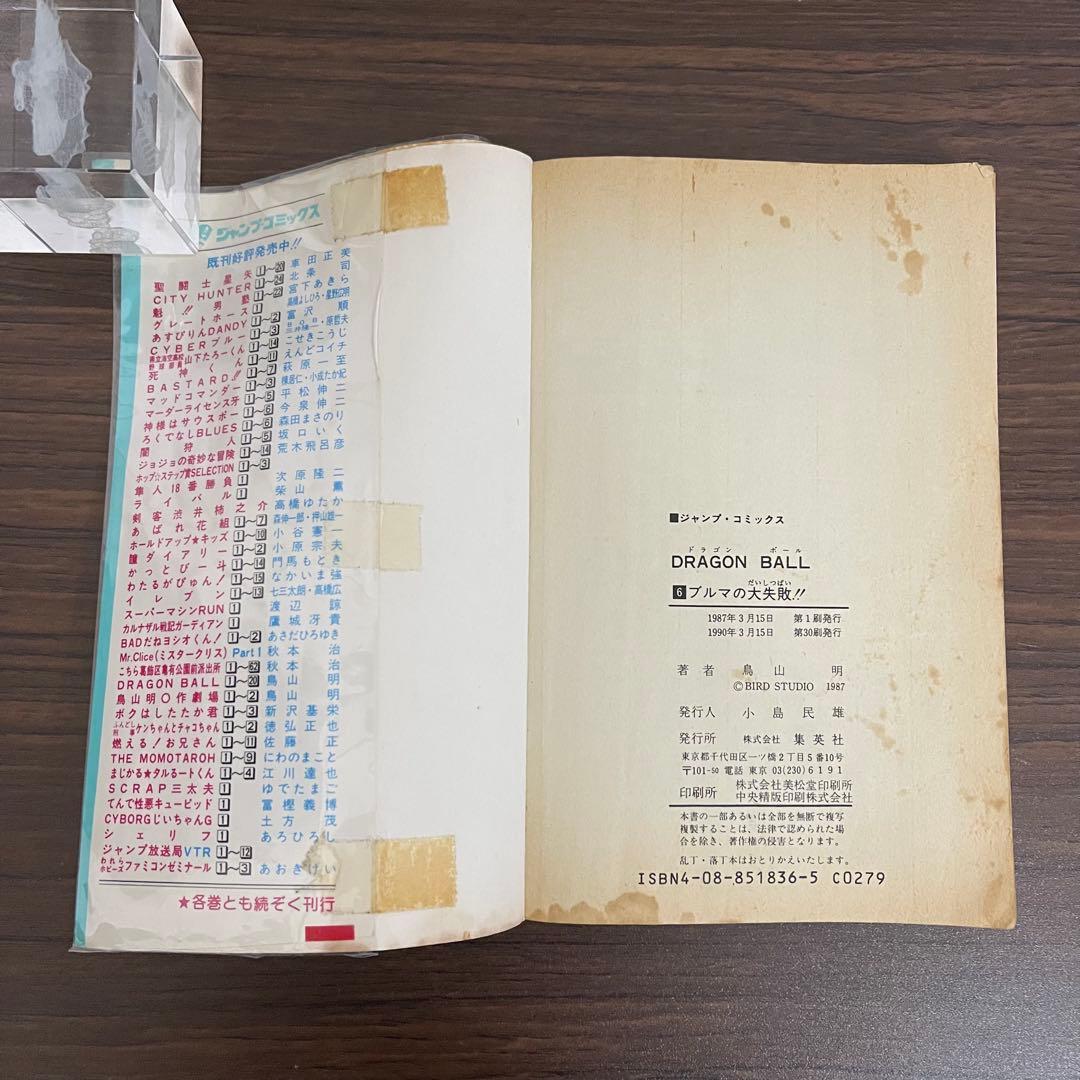 ジャンプ・コミックス
既刊好評発売中!!
聖闘士星矢 1〜 車田正美
CITY HUNTER 1〜 北条司
魁!!男塾 1〜 宮下あきら
グレートホース 1 高橋よしひろ・
あすぴりんDANDY 1〜2 富沢順
CYBERブルー 1〜 ・原哲夫
県立海空高校野球部員山下たろーくん こせきこうじ
死神くん えんどコイチ
BASTARD!! 萩原一至
マッドコマンダー 1〜3 横居仁・小成たか紀
マーダーライセンス牙 1〜5 平松伸二
神様はサウスポー 1〜6 今泉伸二
ろくでなしBLUES 1〜6 森田まさのり
闇狩人 1〜5 坂口いく
ジョジョの奇妙な冒険 1〜14 荒木飛呂彦
ホップ☆ステップ賞SELECTION 1〜3
隼人18番勝負 1 次原隆二
ライバル 1 柴山薫
剣客渋井柿之介 高橋ゆたか
あばれ花組 1〜7 森伸一郎・押山雄一
ホールドアップ★キッズ 1〜10 小谷憲一
瞳ダイアリー 1〜2 小原宗夫
かっとび一斗 1〜14 門馬もとき
わたるがぴゅん! 1〜15 なかいま強
イレブン 1〜13 七三太朗・高橋広
スーパーマシンRUN 1 渡辺諒
カルナザル戦記ガーディアン 1 鷹城冴貴
BADだねヨシオくん! 1〜2 あさだひろゆき
Mr.Clice(ミスタークリス) Part1 秋本治
こちら葛飾区亀有公園前派出所 1〜62 秋本治
DRAGON BALL 1〜20 鳥山明
鳥山明○作劇場 1〜2 鳥山明
ボクはしたたか君 1〜3 新沢基栄
ふんどし刑事ケンちゃんとチャコちゃん 1〜2 徳弘正也
燃える!お兄さん 1〜11 佐藤正
THE MOMOTAROH 1〜9 にわのまこと
まじかる★タルるートくん 1〜4 江川達也
SCRAP三太夫 1 ゆでたまご
てんで性悪キューピッド 1 冨樫義博
CYBORGじいちゃんG 1 土方茂
シェリフ 1 あろひろし
ジャンプ放送局VTR 1〜12
われらホビーズファミコンゼミナール 1〜3 あおきけい
★各巻とも続ぞく刊行
■ジャンプ・コミックス
ドラゴン ボール
DRAGON BALL
だいしっぱい
6 ブルマの大失敗!!
1987年3月15日 第1刷発行
1990年3月15日 第30刷発行
著者 鳥山明
©BIRD STUDIO 1987
発行人 小島民雄
発行所 株式会社 集英社
東京都千代田区一ツ橋2丁目5番10号
〒101-50 電話 東京 03(230)6191
印刷所 株式会社美松堂印刷所
中央精版印刷株式会社
本書の一部あるいは全部を無断で複写
複製することは、法律で認められた場
合を除き、著作権の侵害となります。
乱丁・落丁本はおとりかえいたします。
ISBN4-08-851836-5 C0279